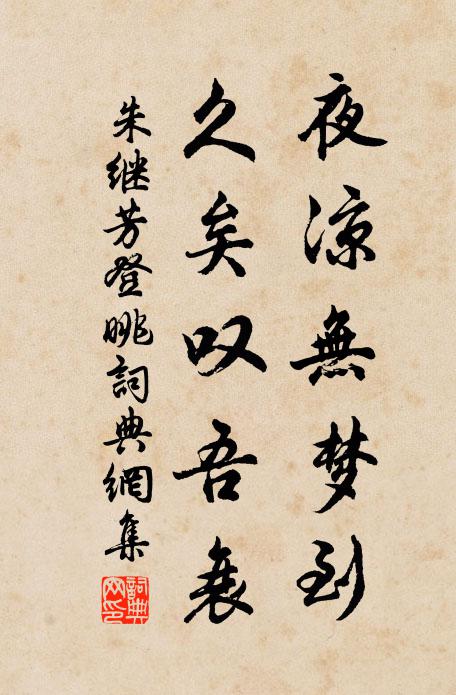 夜凉無梦到
久矣叹吾衰
朱继芳登眺詞典網集
詞典网印